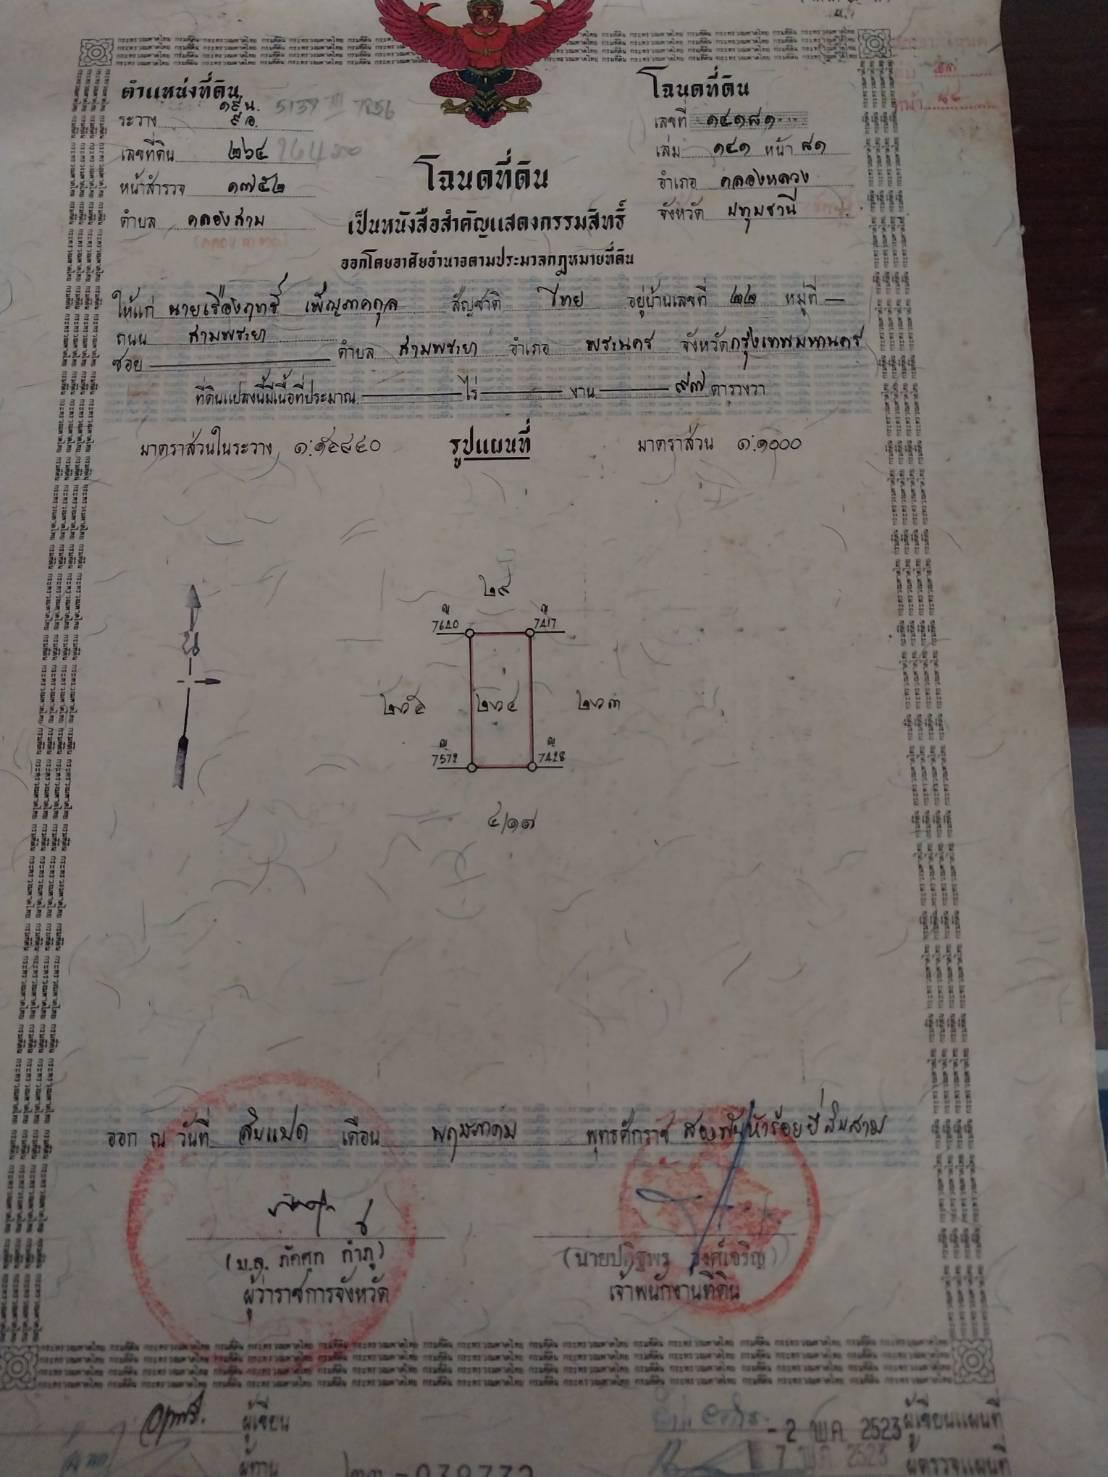 ตำแหน่งที่ดิน
ระวาง ๑๙ น. ๙ อ. 5137 III 7256
เลขที่ดิน ๒๖๔
หน้าสำรวจ ๑๗๕๒
ตำบล คลองสาม
โฉนดที่ดิน
เลขที่ ๑๔๑๘๑
เล่ม ๑๔๑ หน้า ๘๑
อำเภอ คลองหลวง
จังหวัด ปทุมธานี
โฉนดที่ดิน
เป็นหนังสือสำคัญแสดงกรรมสิทธิ์
ออกโดยอาศัยอำนาจตามประมวลกฎหมายที่ดิน
ให้แก่ นายเรืองฤทธิ์ เพ็ญภาคกุล สัญชาติ ไทย อยู่บ้านเลขที่ ๒๒ หมู่ที่ —
ถนน สามพระยา
ซอย — ตำบล สามพระยา อำเภอ พระนคร จังหวัด กรุงเทพมหานคร
ที่ดินแปลงนี้มีเนื้อที่ประมาณ — ไร่ — งาน — ๙๗ ตารางวา
มาตราส่วนในระวาง ๑:๑๕๘๔๐ รูปแผนที่ มาตราส่วน ๑:๑๐๐๐
๒๙
7640 7417
น
๒๖๕ ๒๖๔ ๒๖๓
7572 7428
๔/๑๗
ออก ณ วันที่ สิบแปด เดือน พฤษภาคม พุทธศักราช สองพันห้าร้อยยี่สิบสาม
(ม.ล. ภัคศุก กำภู) (นายปฏิฐพร วงศ์เจริญ)
ผู้ว่าราชการจังหวัด เจ้าพนักงานที่ดิน
ผู้เขียน -2 พ.ค. 2523 ผู้เขียนแผนที่
ผู้ทาน 7 พ.ค. 2523 ผู้ตรวจแผนที่